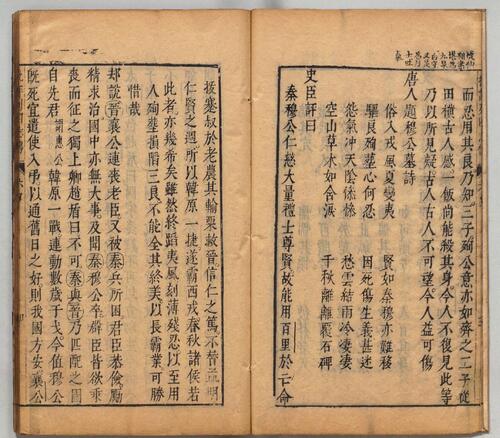 而忍用其良乃知三子殉公意亦如齊之二子從
田橫古人感一飯尚能殺其身今人不復見此等
乃以所見疑古人古人不可望今人益可傷
唐人題穆公墓詩
俗入戎風夏變夷　賢如秦穆亦難移
驅良殉塟心何忍　因死傷生義甚迷
怨氣冲天陰慘慘　愁雲結雨冷凄凄
空山草木如含淚　千秋離離覆石碑
史臣評曰
秦穆公仁慈大量禮士尊賢故能用百里於亡命
拔蹇叔於老農其輸粟救晉信仁之篤不替孟明
仁賢之遇所以韓原一捷遂霸西戎春秋諸侯若
此者亦幾希矣雖然終蹈夷風刻薄殘忍以至用
人殉塟損陷三良不能全其終美以長霸業可勝
惜哉
却說晉襄公連喪老臣又被秦兵所困君臣恭儉勵
精求治國中亦無大事及聞秦穆公卒群臣皆欲乘
喪而征之獨上卿趙盾曰不可秦與晉乃匹配之國
自先君謂惠公韓原一戰連動數歲干戈今值穆公
既死宜遣使入弔以通舊日之好則我國方安襄公